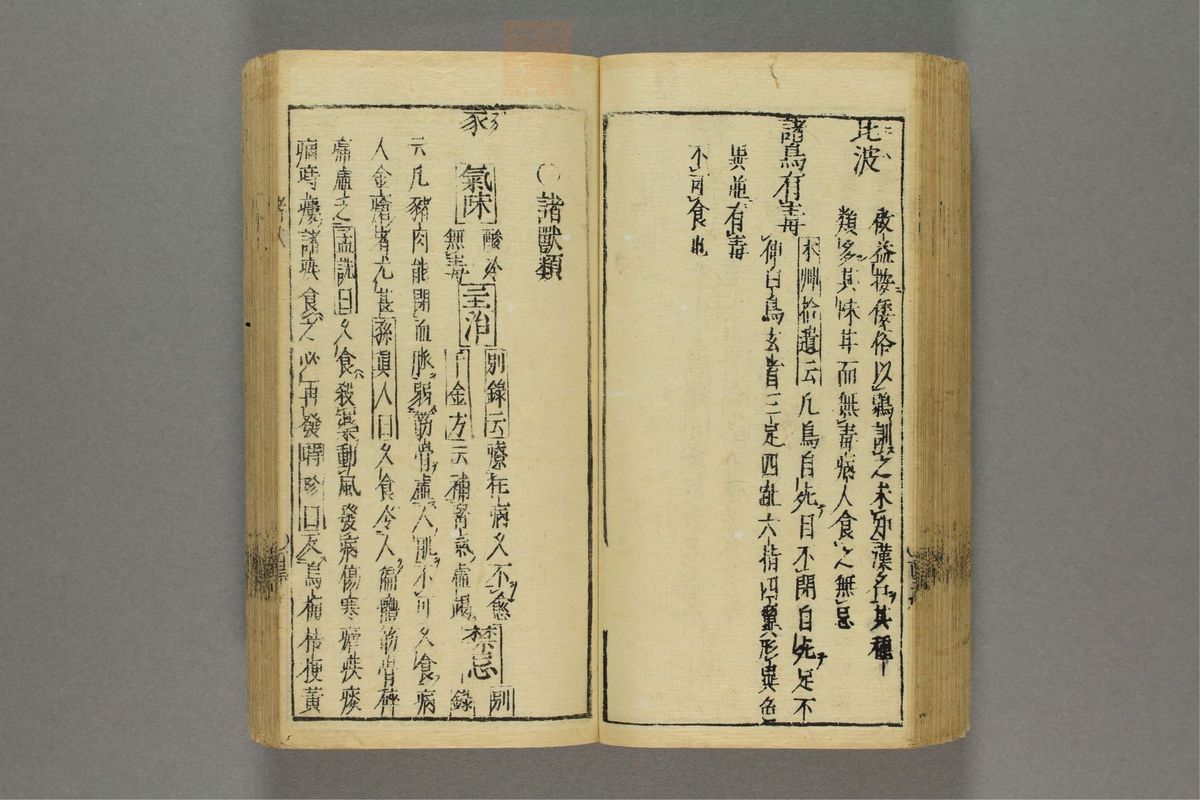 比波
皮益按倭俗以鷄訓之未知漢名其種
類多其味甘而無毒病人食之無忌
諸鳥有毒
本艸拾遺云凡鳥自死目不閉自死足不
伸白鳥玄首三足四距六指四翼異形異色
異並有毒
不可食也
○諸獸類
豕
氣味 酸冷無毒 主治 別錄云療狂病久不愈 禁忌 別
千金方云補腎氣虛竭 錄
云凡豬肉能閉血脉弱筋骨虛人肌不可久食病
人金瘡者尤甚孫眞人曰久食令人偏體筋骨碎
痛虛之孟詵曰久食殺藥動風發病傷寒瘧疾痰
痼痔瘻諸疾食之必再發時珍曰反烏梅桔梗黃